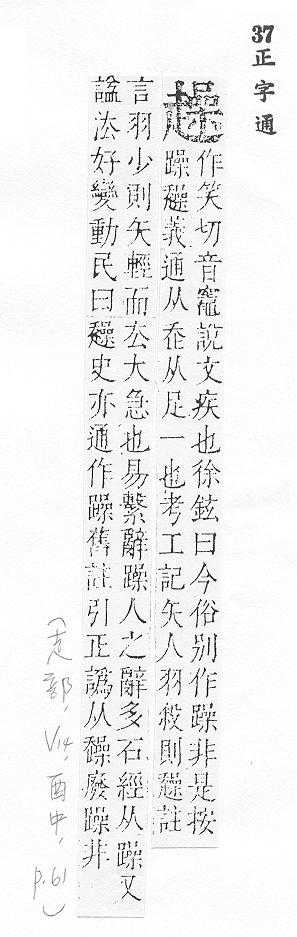 37 正字通
趮 作笑切音竈說文疾也徐鉉曰今俗別作躁非是按
躁趮義通从走从足一也考工記矢人羽殺則趮註
言羽少則矢輕而厺大急也易繫辭躁人之辭多石經从躁又
諡法好變動民曰趮史亦通作躁舊註引正譌从趮廢躁非
(走部, V14, 酉中, P.61)